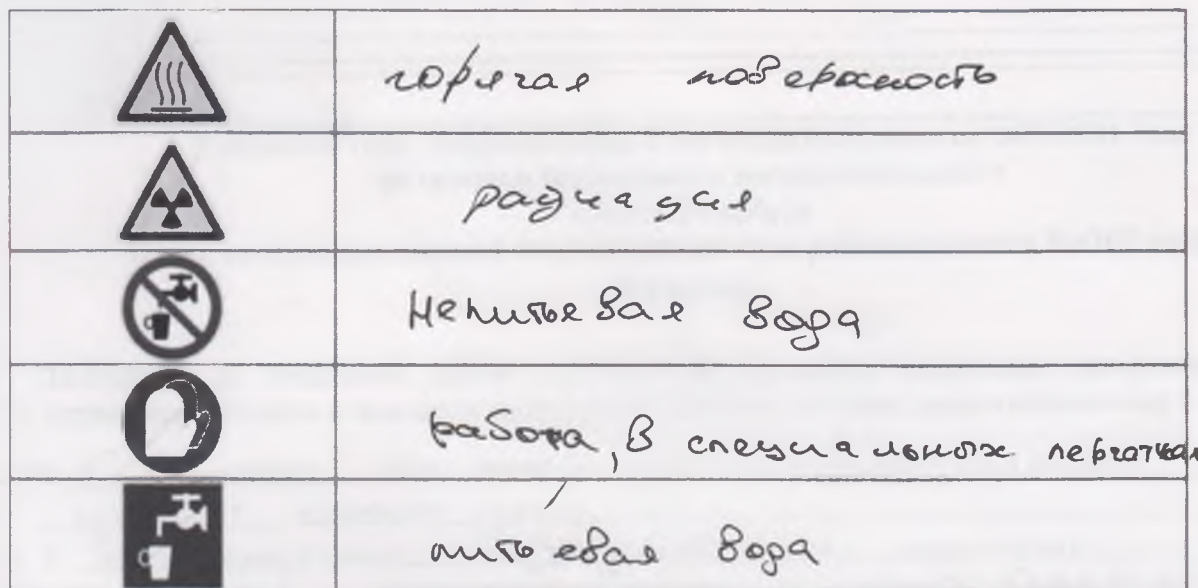 горячая поверхность
радиация
Непитьевая вода
работа, в специальных перчатках
питьевая вода